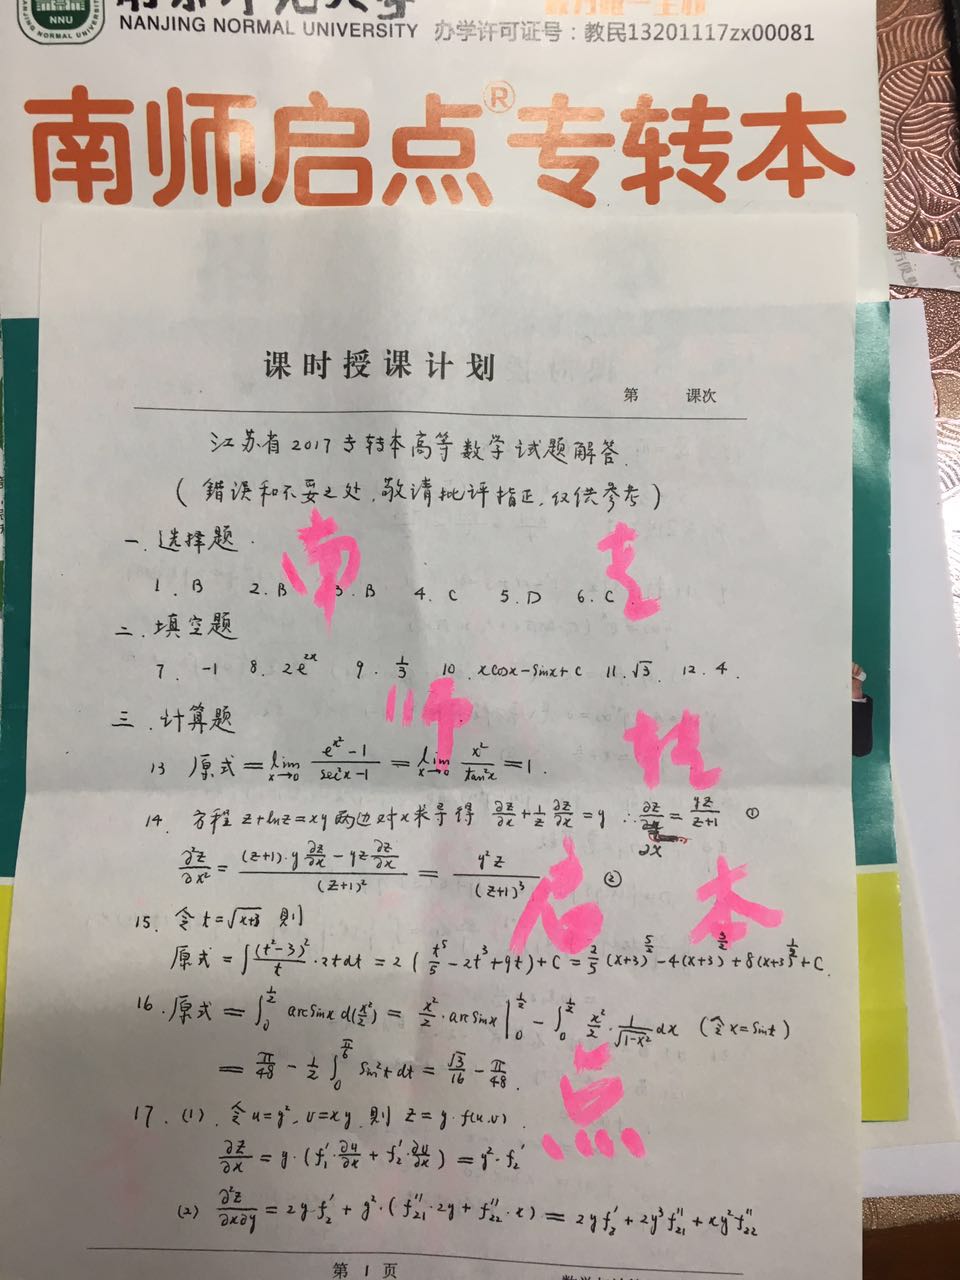 NNU
NANJING NORMAL UNIVERSITY 办学许可证号：教民13201117zx00081
南师启点®专转本
课时授课计划
第 课次
江苏省2017专转本高等数学试题解答.
(错误和不妥之处,敬请批评指正,仅供参考)
一.选择题.
1. B 2. B 3. B 4. C 5. D 6. C
二.填空题
7. -1 8. 2e^{2x} 9. 1/3 10. xcosx-sinx+c 11. √3 12. 4.
三.计算题
13 原式=lim_{x→0} (e^{x²}-1)/(sec²x-1) = lim_{x→0} x²/tan²x = 1.
14. 方程z+lnz=xy两边对x求导得 ∂z/∂x + 1/z ∂z/∂x = y ∴ ∂z/∂x = yz/(z+1) ①
∂²z/∂x² = ((z+1)·y ∂z/∂x - yz ∂z/∂x)/(z+1)² = y²z/(z+1)³ ②
15. 令t=√(x+3) 则
原式=∫(t²-3)²/t · 2tdt = 2(t⁵/5 - 2t³+9t)+C = 2/5 (x+3)^{5/2} - 4(x+3)^{3/2} + 8(x+3)^{1/2} + C
16. 原式 = ∫_0^{1/2} arcsinx d(x²/2) = x²/2 · arcsinx |_0^{1/2} - ∫_0^{1/2} x²/2 · 1/√(1-x²) dx (令x=sint)
= π/48 - 1/2 ∫_0^{π/6} sin²t dt = √3/16 - π/48.
17. (1) 令u=y², v=xy 则 z=y·f(u,v)
∂z/∂x = y·(f₁'·∂u/∂x + f₂'·∂u/∂x) = y²·f₂'
(2) ∂²z/∂x∂y = 2y f₂' + y²·(f₂₁''·2y + f₂₂''·x) = 2yf₂' + 2y³f₂₁'' + xy²f₂₂''
第 1 页
南师启点
专转本